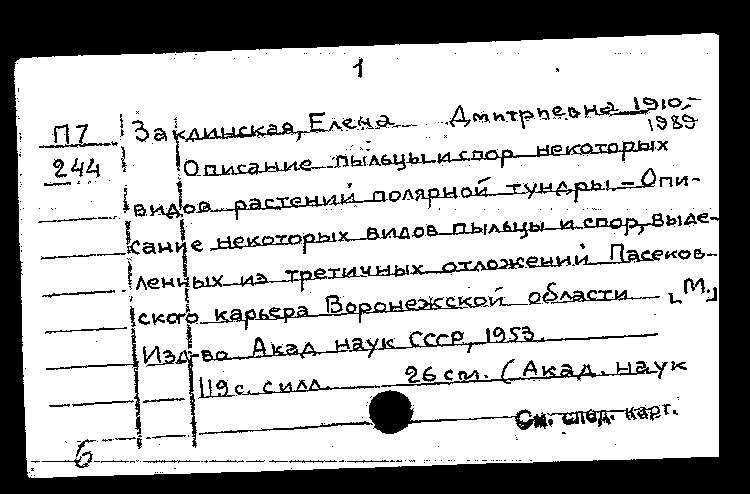 1
П7 Заклинская, Елена Дмитриевна 1910-
1989
244 Описание пыльцы и спор некоторых
видов растений полярной тундры.-Опи-
сание некоторых видов пыльцы и спор, выде-
ленных из третичных отложений Пасеков-
ского карьера Воронежской области [М.]
Изд-во Акад. наук СССР, 1953.
119 с. с илл. 26 см. (Акад. наук
См. след. карт.
6